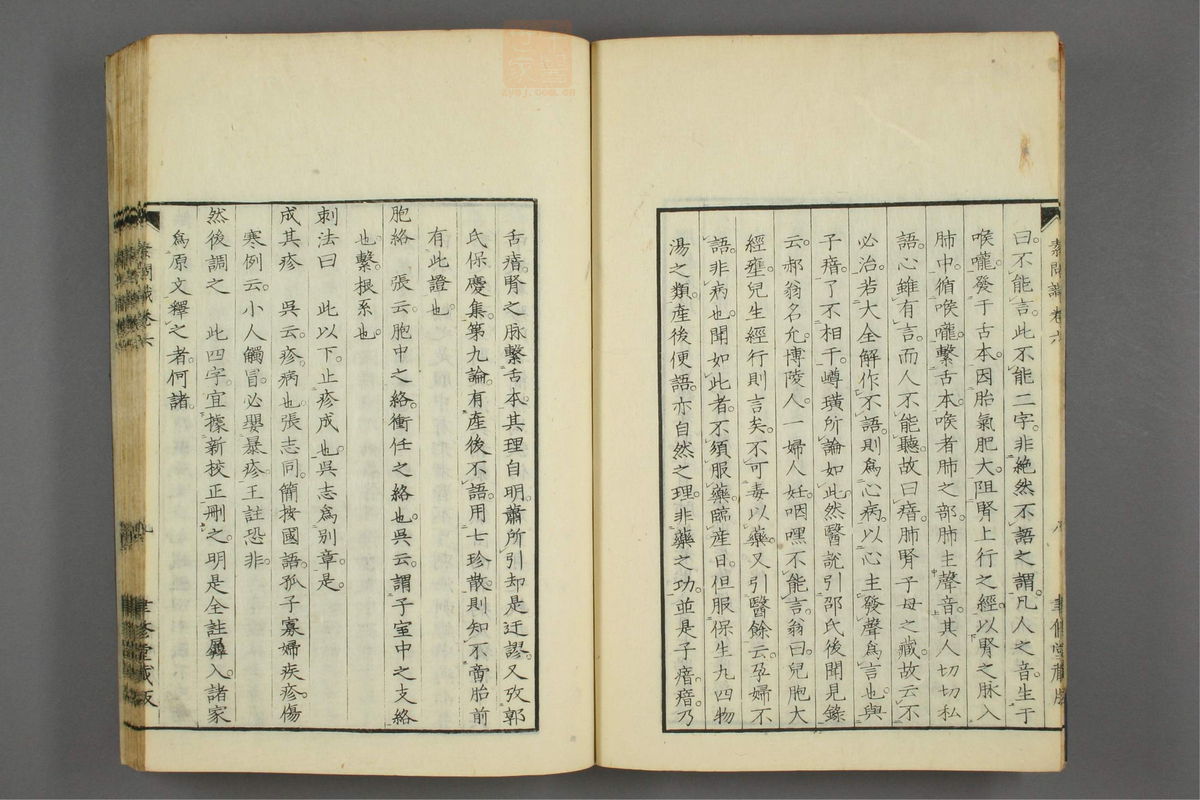 曰不能言此不能二字非絶然不語之謂凡人之音生于
喉嚨發于舌本因胎氣肥大阻腎上行之經以腎之脉入
肺中循喉嚨繫舌本喉者肺之部肺主聲音其人切切私
語心雖有言而人不能聽故曰瘖肺腎子母之藏故云不
必治若大全解作不語則爲心病以心主發聲爲言也與
子瘖了不相干嶟璜所論如此然醫説引邵氏後聞見錄
云郝翁名允博陵人一婦人妊咽嘿不能言翁曰兒胞大
經壅兒生經行則言矣不可毒以藥又引醫餘云孕婦不
語非病也聞如此者不須服藥臨産日但服保生九四物
湯之類産後便語亦自然之理非藥之功並是子瘖瘖乃
素問識卷六
八
聿修堂藏版
舌瘖腎之脉繫舌本其理自明蕭所引却是迂謬又攷郭
氏保慶集第九論有産後不語用七珍散則知不啻胎前
有此證也
胞絡 張云胞中之絡衝任之絡也吳云謂子室中之支絡
也繫根系也
刺法曰 此以下止疹成也吳志爲別章是
成其疹 吳云疹病也張志同簡按國語孤子寡婦疾疹傷
寒例云小人觸冒必嬰暴疹王註恐非
然後調之 此四字宜據新校正刪之明是全註羼入諸家
爲原文釋之者何諸
素問識卷六
九
聿修堂藏版
zysj.com.cn